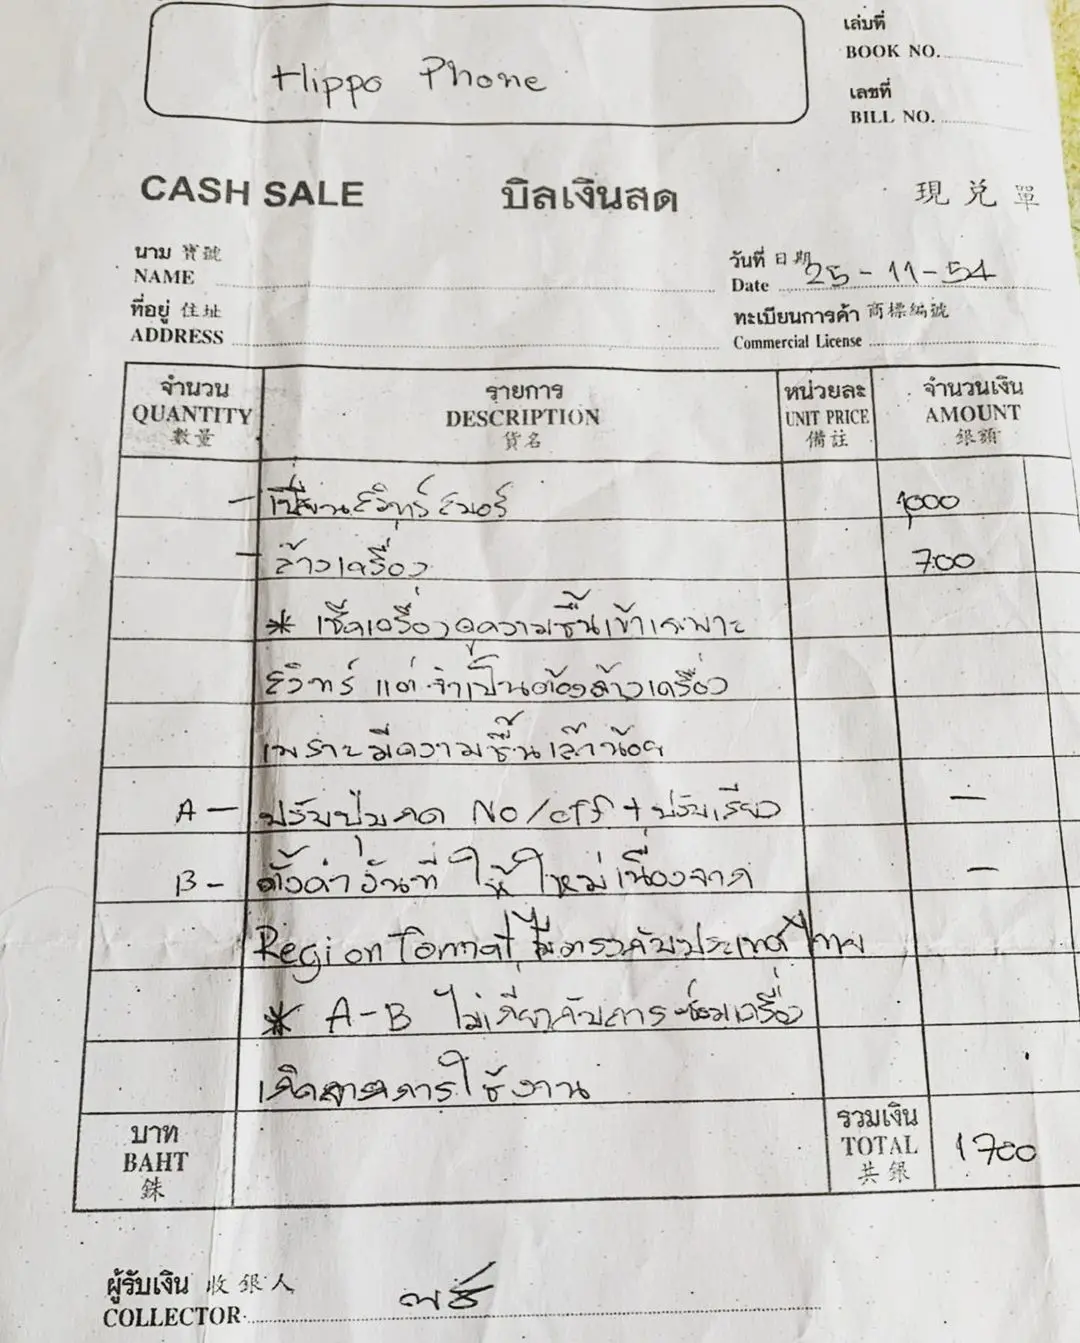 Hippo Phone
เล่มที่
BOOK NO.
เลขที่
BILL NO.
CASH SALE บิลเงินสด 現兑單
นาม 寶號
NAME
วันที่ 日期
Date 25-11-54
ที่อยู่ 住址
ADDRESS
ทะเบียนการค้า 商標編號
Commercial License
จำนวน รายการ หน่วยละ จำนวนเงิน
QUANTITY DESCRIPTION UNIT PRICE AMOUNT
數量 貨名 備註 銀額
- เปลี่ยนสวิทซ์ 1000
- ล้างเครื่อง 700
* เช็คเครื่อง ความชื้นเข้าเฉพาะ
สวิทซ์ แต่จำเป็นต้องล้างเครื่อง
เพราะมีความชื้นเล็กน้อย
A - ปรับปุ่มกด No/off + ปรับเสียง -
B - ตั้งค่าวันที่ ให้ใหม่เนื่องจาก -
Region Format ไม่ตรงกับประเทศไทย
* A-B ไม่เกี่ยวกับการซ่อมเครื่อง
เกิดจากการใช้งาน
บาท รวมเงิน
BAHT TOTAL 1700
銖 共銀
ผู้รับเงิน 收銀人
COLLECTOR